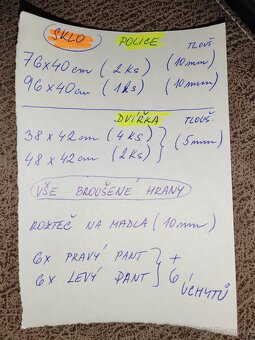 SKLO POLICE TLOUŠ.
76x40 cm (2 ks) (10mm)
96x40 cm (1 ks) (10mm)
DVÍŘKA TLOUŠ.
38 x 42 cm (4 ks) } (5mm)
48 x 42 cm (2 ks)
VŠE BROUŠENÉ HRANY
ROZTEČ NA MADLA (10mm)
6x PRAVÝ PANT } +
6x LEVÝ PANT 6
ÚCHYTŮ